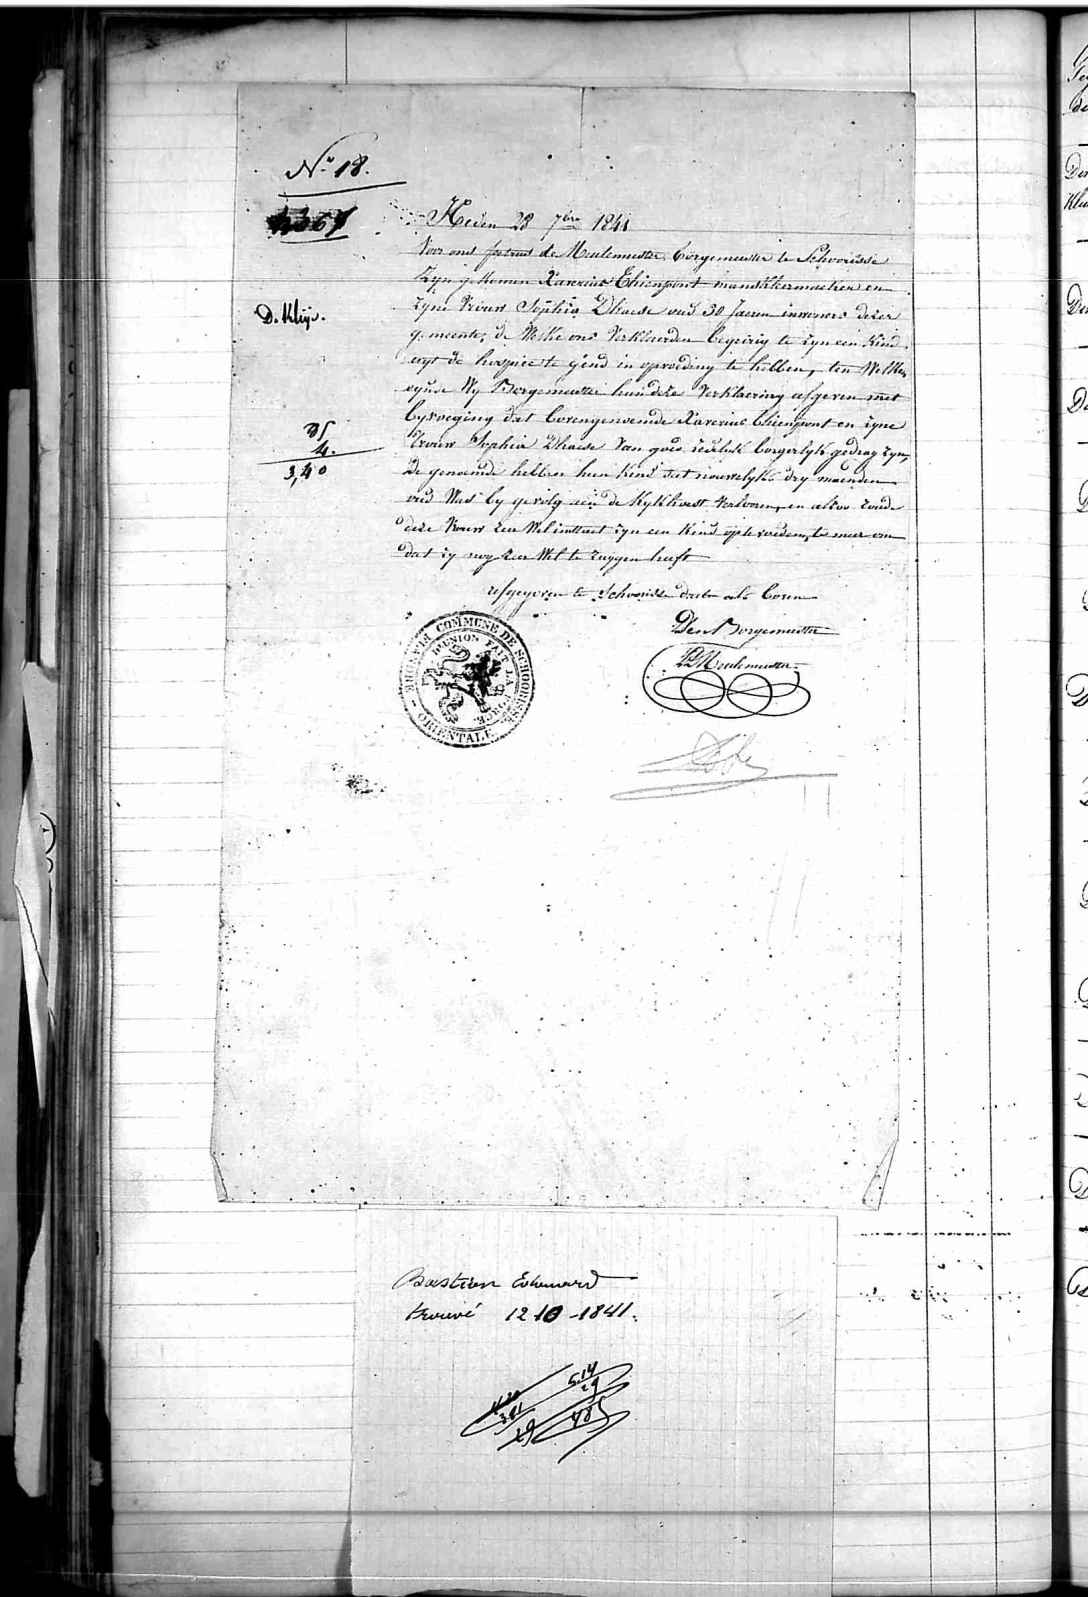 N.º 18.
4367
Heden 28 7bre 1841
Voor ons de Meulemeester Borgemeester te Schoorisse
Zyn gekomen Xaverius Thienpont manskleermaeker en
Zyne Vrouw Sophia Dhaese oud 30 Jaeren inwoners dezer
gemeente, de Welke ons Verklaerden begeirig te zyn een Kind
uyt de hospice te gend in opvoeding te hebben, ten Welken
Wy Borgemeester hun deze Verklaering afgeven met
byvoeging dat bovengenoemde Xaverius Thienpont en zyne
Vrouw Sophia Dhaese Van goed zedelyk borgerlyk gedrag zyn,
de genoemde hebben hun Kind dat nouwelyks dry maenden
oud Was by gevolg aen de Kykhoest Verloren, en alzoo zoude
deze Vrouw zeer Wel in staet zyn een Kind opte voeden, te meer om
dat zy nog zeer Wel te zuygen heeft
Afgegeven te Schoorisse date als boven
Den Borgemeester
DMeulemeester
D. Klyn.
4.
3,40
COMMUNE DE SCHOORISSE
FLANDRE ORIENTALE
L'UNION FAIT LA FORCE
Bastien Edouard
trouvé 12-10-1841.
5.14
29
485
29